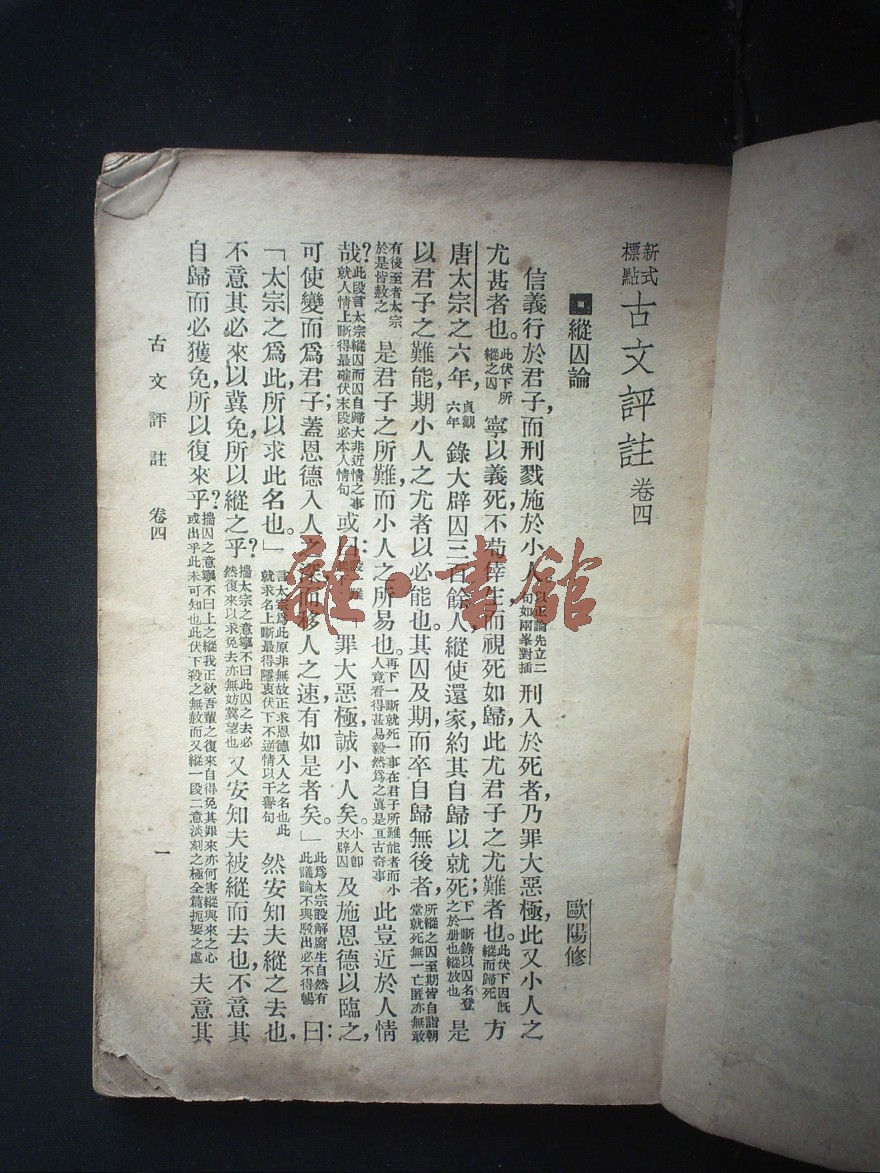 新式標點 古文評註 卷四
縱囚論 歐陽修
信義行於君子，而刑戮施於小人。以正論先立二句如兩峯對插 刑入於死者，乃罪大惡極，此又小人之
尤甚者也。此伏下所縱之囚 寧以義死，不苟幸生，而視死如歸，此尤君子之尤難者也。此伏下囚旣縱而歸死 方
唐太宗之六年，貞觀六年 錄大辟囚三百餘人，縱使還家，約其自歸以就死；下一斷錄以囚名登之於册也縱放也 是
以君子之難能，期小人之尤者以必能也。其囚及期，而卒自歸無後者，所縱之囚至期皆自詣朝堂就死無一亡匿亦無敢
有後至者太宗於是皆赦之 是君子之所難，而小人之所易也。再下一斷就死一事在君子所難能者而小人竟看得甚易毅然爲之眞是亙古奇事 此豈近於人情
哉？此段言太宗縱囚而囚自歸大非近情之事就人情上斷得最確伏末段必本人情句 或曰： 罪大惡極，誠小人矣。小人卽大辟囚 及施恩德以臨之，
可使變而爲君子；蓋恩德入人之深，而移人之速，有如是者矣。」此爲太宗設解腐生自然有此議論不與駁出必不得暢 曰：
「太宗之爲此，所以求此名也。」言太宗爲此原非無故正求恩德入人之名也此就求名上斷最得隱衷伏下不逆情以干譽句 然安知夫縱之去也，
不意其必來以冀免，所以縱之乎？揣太宗之意寧不曰此囚之去必然復來以求免去亦無妨冀望也 又安知夫被縱而去也，不意其
自歸而必獲免，所以復來乎？揣囚之意寧不曰上之縱我正欲吾輩之復來自得免其罪來亦何害縱與來之心或出乎此未可知也此伏下殺之無赦而又縱一段二意淡刻之極全篇扼要之處 夫意其
古文評註 卷四 一
雜·書館